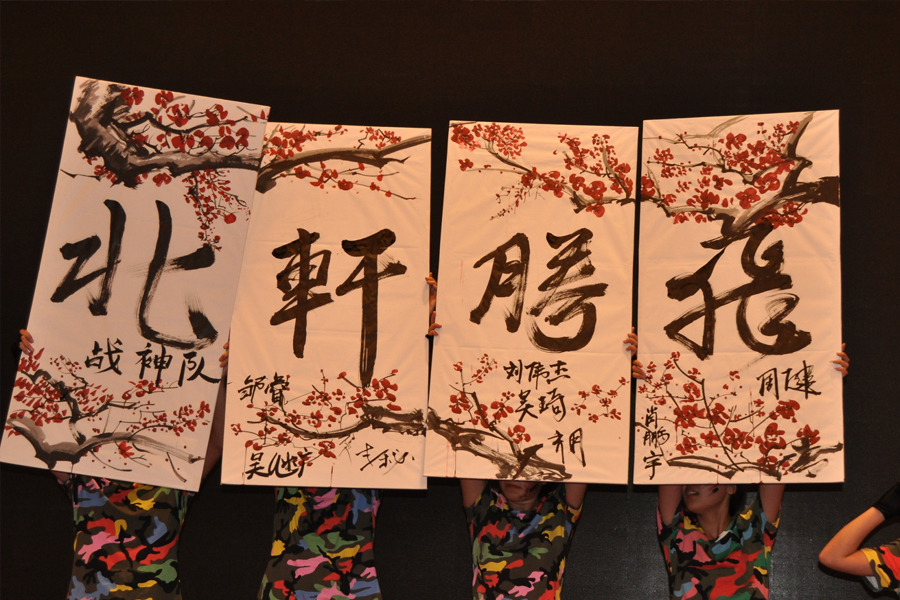 北軒騰飛
战神队
邹
吴
刘伟杰
吴琦
周建
肖鹏宇